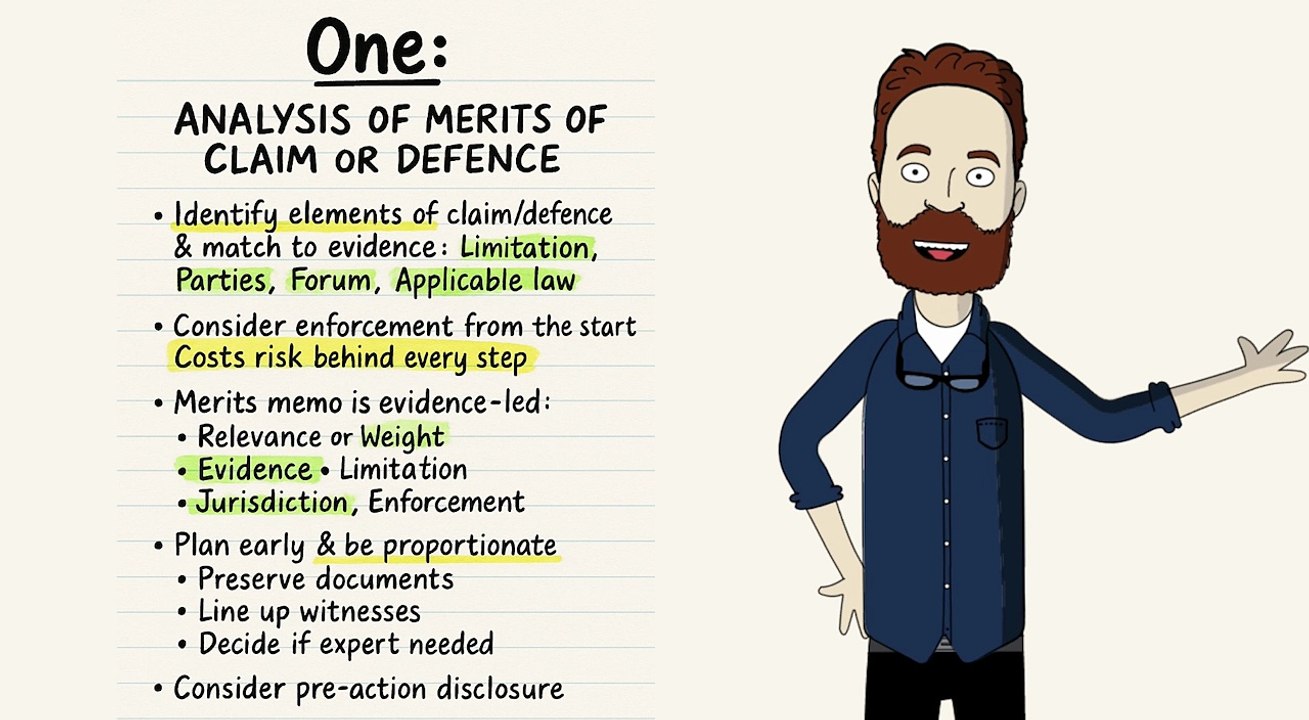 One:
ANALYSIS OF MERITS OF
CLAIM OR DEFENCE
• Identify elements of claim/defence
& match to evidence: Limitation,
Parties, Forum, Applicable law
• Consider enforcement from the start
Costs risk behind every step
• Merits memo is evidence-led:
• Relevance or Weight
• Evidence • Limitation
• Jurisdiction, Enforcement
• Plan early & be proportionate
• Preserve documents
• Line up witnesses
• Decide if expert needed
• Consider pre-action disclosure